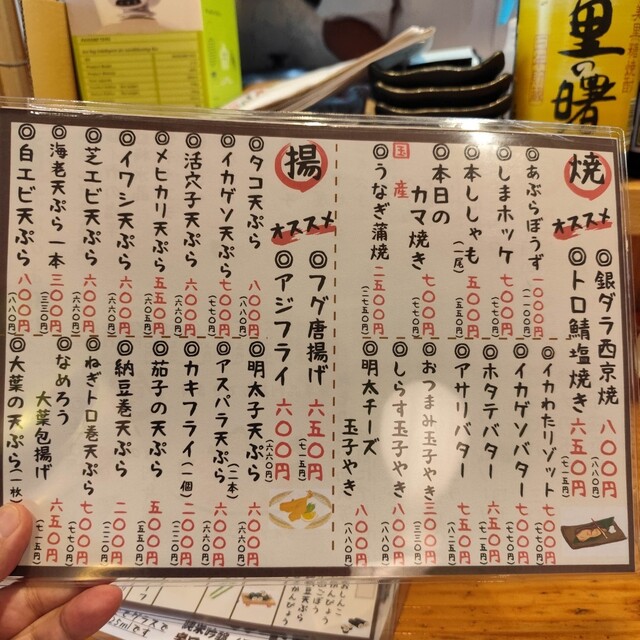 焼
オススメ
◎銀ダラ西京焼 八〇〇円(八八〇円)
◎トロ鯖塩焼き 六五〇円(七一五円)
◎あぶらぼうず 一〇〇〇円(一一〇〇円)
◎しまホッケ 七〇〇円(七七〇円)
◎本ししゃも(一尾) 五〇〇円(五五〇円)
◎本日のカマ焼き 七〇〇円(七七〇円)
国産
◎うなぎ蒲焼 二五〇〇円(二七五〇円)
◎イカわたリゾット 七〇〇円(七七〇円)
◎イカゲソバター 七〇〇円(七七〇円)
◎ホタテバター 六五〇円(七一五円)
◎アサリバター 七五〇円(八二五円)
◎おつまみ玉子やき 三〇〇円(三三〇円)
◎しらす玉子やき 八〇〇円(八八〇円)
◎明太チーズ玉子やき 八〇〇円(八八〇円)
揚
オススメ
◎フグ唐揚げ 六五〇円(七一五円)
◎アジフライ 六〇〇円(六六〇円)
◎タコ天ぷら 八〇〇円(八八〇円)
◎イカゲソ天ぷら 七〇〇円(七七〇円)
◎活穴子天ぷら 六〇〇円(六六〇円)
◎メヒカリ天ぷら 五五〇円
◎イワシ天ぷら 六〇〇円(六六〇円)
◎芝エビ天ぷら 六〇〇円(六六〇円)
◎海老天ぷら一本 三〇〇円(三三〇円)
◎白エビ天ぷら 八〇〇円(八八〇円)
◎明太子天ぷら 六〇〇円(六六〇円)
◎アスパラ天ぷら(二本) 六〇〇円(六六〇円)
◎カキフライ(一個) 二〇〇円(二二〇円)
◎茄子の天ぷら 五〇〇円(五五〇円)
◎納豆巻天ぷら 二〇〇円(二二〇円)
◎ねぎトロ巻天ぷら 七〇〇円(七七〇円)
◎なめろう大葉包揚げ 六五〇円(七一五円)
◎大葉の天ぷら(一枚)
里の曙